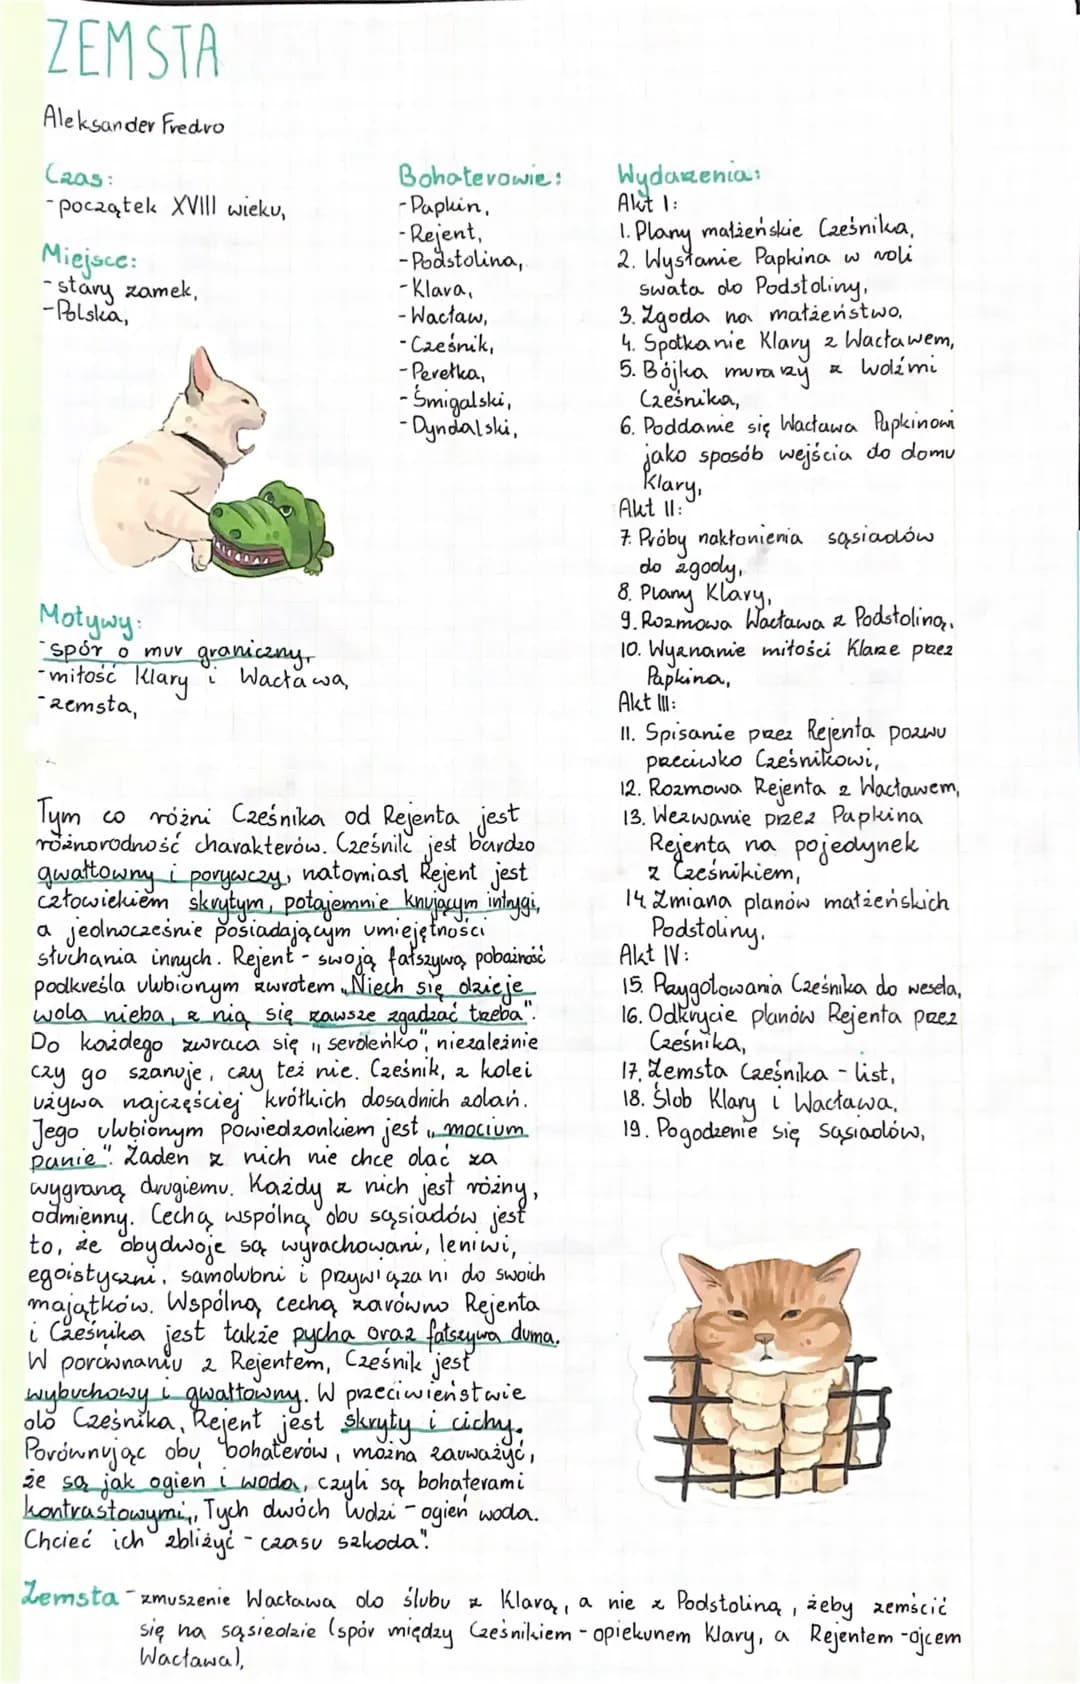 ZEMSTA
Aleksander Fredro
Czas:
- początek XVIII wieku,
Miejsce:
- stary zamek,
- Polska,
Bohaterowie:
- Papkin,
- Rejent,
- Podstolina,
- Klara,
- Wacław,
- Cześnik,
- Perełka,
- Śmigalski,
- Dyndalski,
Motywy:
- spór o mur graniczny,
- miłość Klary i Wacława,
- zemsta,
Tym co różni Cześnika od Rejenta jest
różnorodność charakterów. Cześnik jest bardzo
gwałtowny i porywczy, natomiast Rejent jest
człowiekiem skrytym, potajemnie knującym intrygi,
a jednocześnie posiadającym umiejętności
słuchania innych. Rejent - swoją fałszywą pobożność
podkreśla ulubionym zwrotem „Niech się dzieje
wola nieba, z nią się zawsze zgadzać trzeba".
Do każdego zwraca się „serdeńko", niezależnie
czy go szanuje, czy też nie. Cześnik, z kolei
używa najczęściej krótkich dosadnich zdań.
Jego ulubionym powiedzonkiem jest „mocium
panie". Żaden z nich nie chce dać za
wygraną drugiemu. Każdy z nich jest różny,
odmienny. Cechą wspólną obu sąsiadów jest
to, że obydwoje są wyrachowani, leniwi,
egoistyczni, samolubni i przywiązani do swoich
majątków. Wspólną cechą zarówno Rejenta
i Cześnika jest także pycha oraz fałszywa duma.
W porównaniu z Rejentem, Cześnik jest
wybuchowy i gwałtowny. W przeciwieństwie
do Cześnika, Rejent jest skryty i cichy.
Porównując obu bohaterów, można zauważyć,
że są jak ogień i woda, czyli są bohaterami
kontrastowymi „Tych dwóch ludzi - ogień woda.
Chcieć ich zbliżyć - czasu szkoda".
Wydarzenia:
Akt I:
1. Plany małżeńskie Cześnika,
2. Wysłanie Papkina w roli
swata do Podstoliny,
3. Zgoda na małżeństwo,
4. Spotkanie Klary z Wacławem,
5. Bójka murarzy z ludźmi
Cześnika,
6. Poddanie się Wacława Papkinowi
jako sposób wejścia do domu
Klary,
Akt II:
7. Próby nakłonienia sąsiadów
do zgody,
8. Plany Klary,
9. Rozmowa Wacława z Podstoliną,
10. Wyznanie miłości Klarze przez
Papkina,
Akt III:
11. Spisanie przez Rejenta pozwu
przeciwko Cześnikowi,
12. Rozmowa Rejenta z Wacławem,
13. Wezwanie przez Papkina
Rejenta na pojedynek
z Cześnikiem,
14. Zmiana planów małżeńskich
Podstoliny,
Akt IV:
15. Przygotowania Cześnika do wesela,
16. Odkrycie planów Rejenta przez
Cześnika,
17. Zemsta Cześnika - list,
18. Ślub Klary i Wacława,
19. Pogodzenie się sąsiadów,
Zemsta - zmuszenie Wacława do ślubu z Klarą, a nie z Podstoliną, żeby zemścić
się na sąsiedzie (spór między Cześnikiem - opiekunem Klary, a Rejentem - ojcem
Wacława),